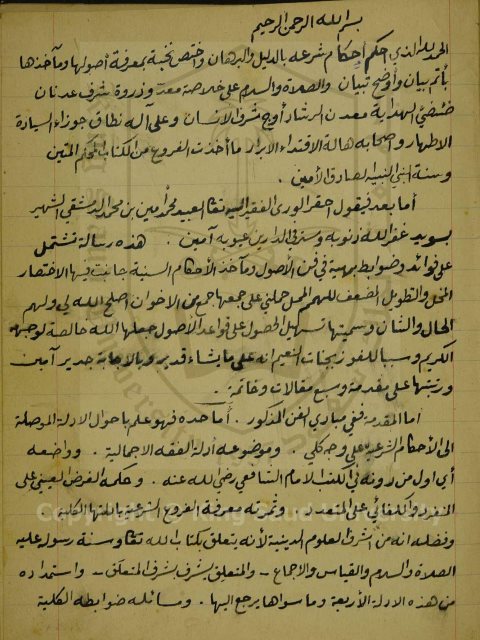 بسم الله الرحمن الرحيم
الحمد لله الذي أحكم أحكام شرعه بالدليل والبرهان واختص نخبة بمعرفة أصولها ومآخذها
بأتم بيان وأوضح تبيان والصلاة والسلام على خلاصة معد وذروة شرف عدنان
الهداية معدن الرشاد أوج شرف الانسان وعلى آله نطاق جوزاء السيادة
الاطهار وأصحابه هالة الاقتداء الابرار ما أخذت الفروع من الكتاب المحكم المتين
وسنة النبي النبيه الصادق الأمين .
أما بعد فيقول أحقر الورى الفقير اليه تعالى العبيد محمد أمين بن محمد الدمشقي الشهير
بسويد غفر الله ذنوبه وستر في الدارين عيوبه آمين . هذه رسالة تشتمل
على فوائد وضوابط مهمة في فن الأصول ومآخذ الأحكام السنية جانبت فيها الاختصار
المخل والتطويل المضعف للهمم الممل حملني على جمعها جمع من الاخوان أصلح الله لي ولهم
الحال والشان وسميتها تسهيل الحصول على قواعد الأصول جعلها الله خالصة لوجهه
الكريم وسببا للفوز بجنات النعيم انه على ما يشاء قدير وبالاجابة جدير آمين
ورتبتها على مقدمة وسبع مقالات وخاتمة .
أما المقدمة ففي مبادي الفن المذكور . أما حده فهو علم باحوال الادلة الموصلة
الى الأحكام الشرعية على وجه كلي . وموضوعه أدلة الفقه الاجمالية . وواضعه
أي اول من دونه في الكتب الامام الشافعي رضي الله عنه . وحكمه الفرض العيني على
المنفرد والكفائي على المتعدد . وثمرته معرفة الفروع الشرعية بادلتها الكلية
وفضله انه من أشرف العلوم الدينية لأنه يتعلق بكتاب الله تعالى وسنة رسوله عليه
الصلاة والسلام والقياس والاجماع - والمتعلق يشرف بشرف المتعلق - واستمداده
من هذه الادلة الأربعة وما سواها يرجع اليها . ومسائله ضوابطه الكلية
Copyright © King Saud University